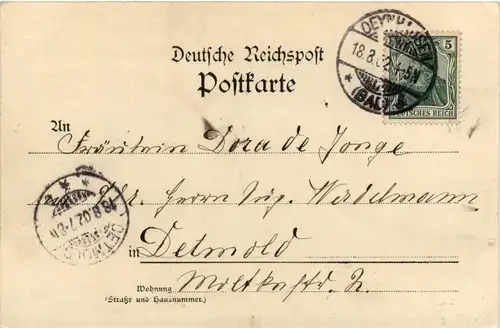 OEYNHAUSEN
18.8.02.4-5N
(BAD)
5
DEUTSCHES REICH
Deutsche Reichspost
Postkarte
An
Fräulein Dora de Jonge
Adr. Herrn Aug. Werdelmann
in Detmold
Wohnung
(Straße und Hausnummer.)
Moltkestr.
DETMOLD
18.8.02.7-8N